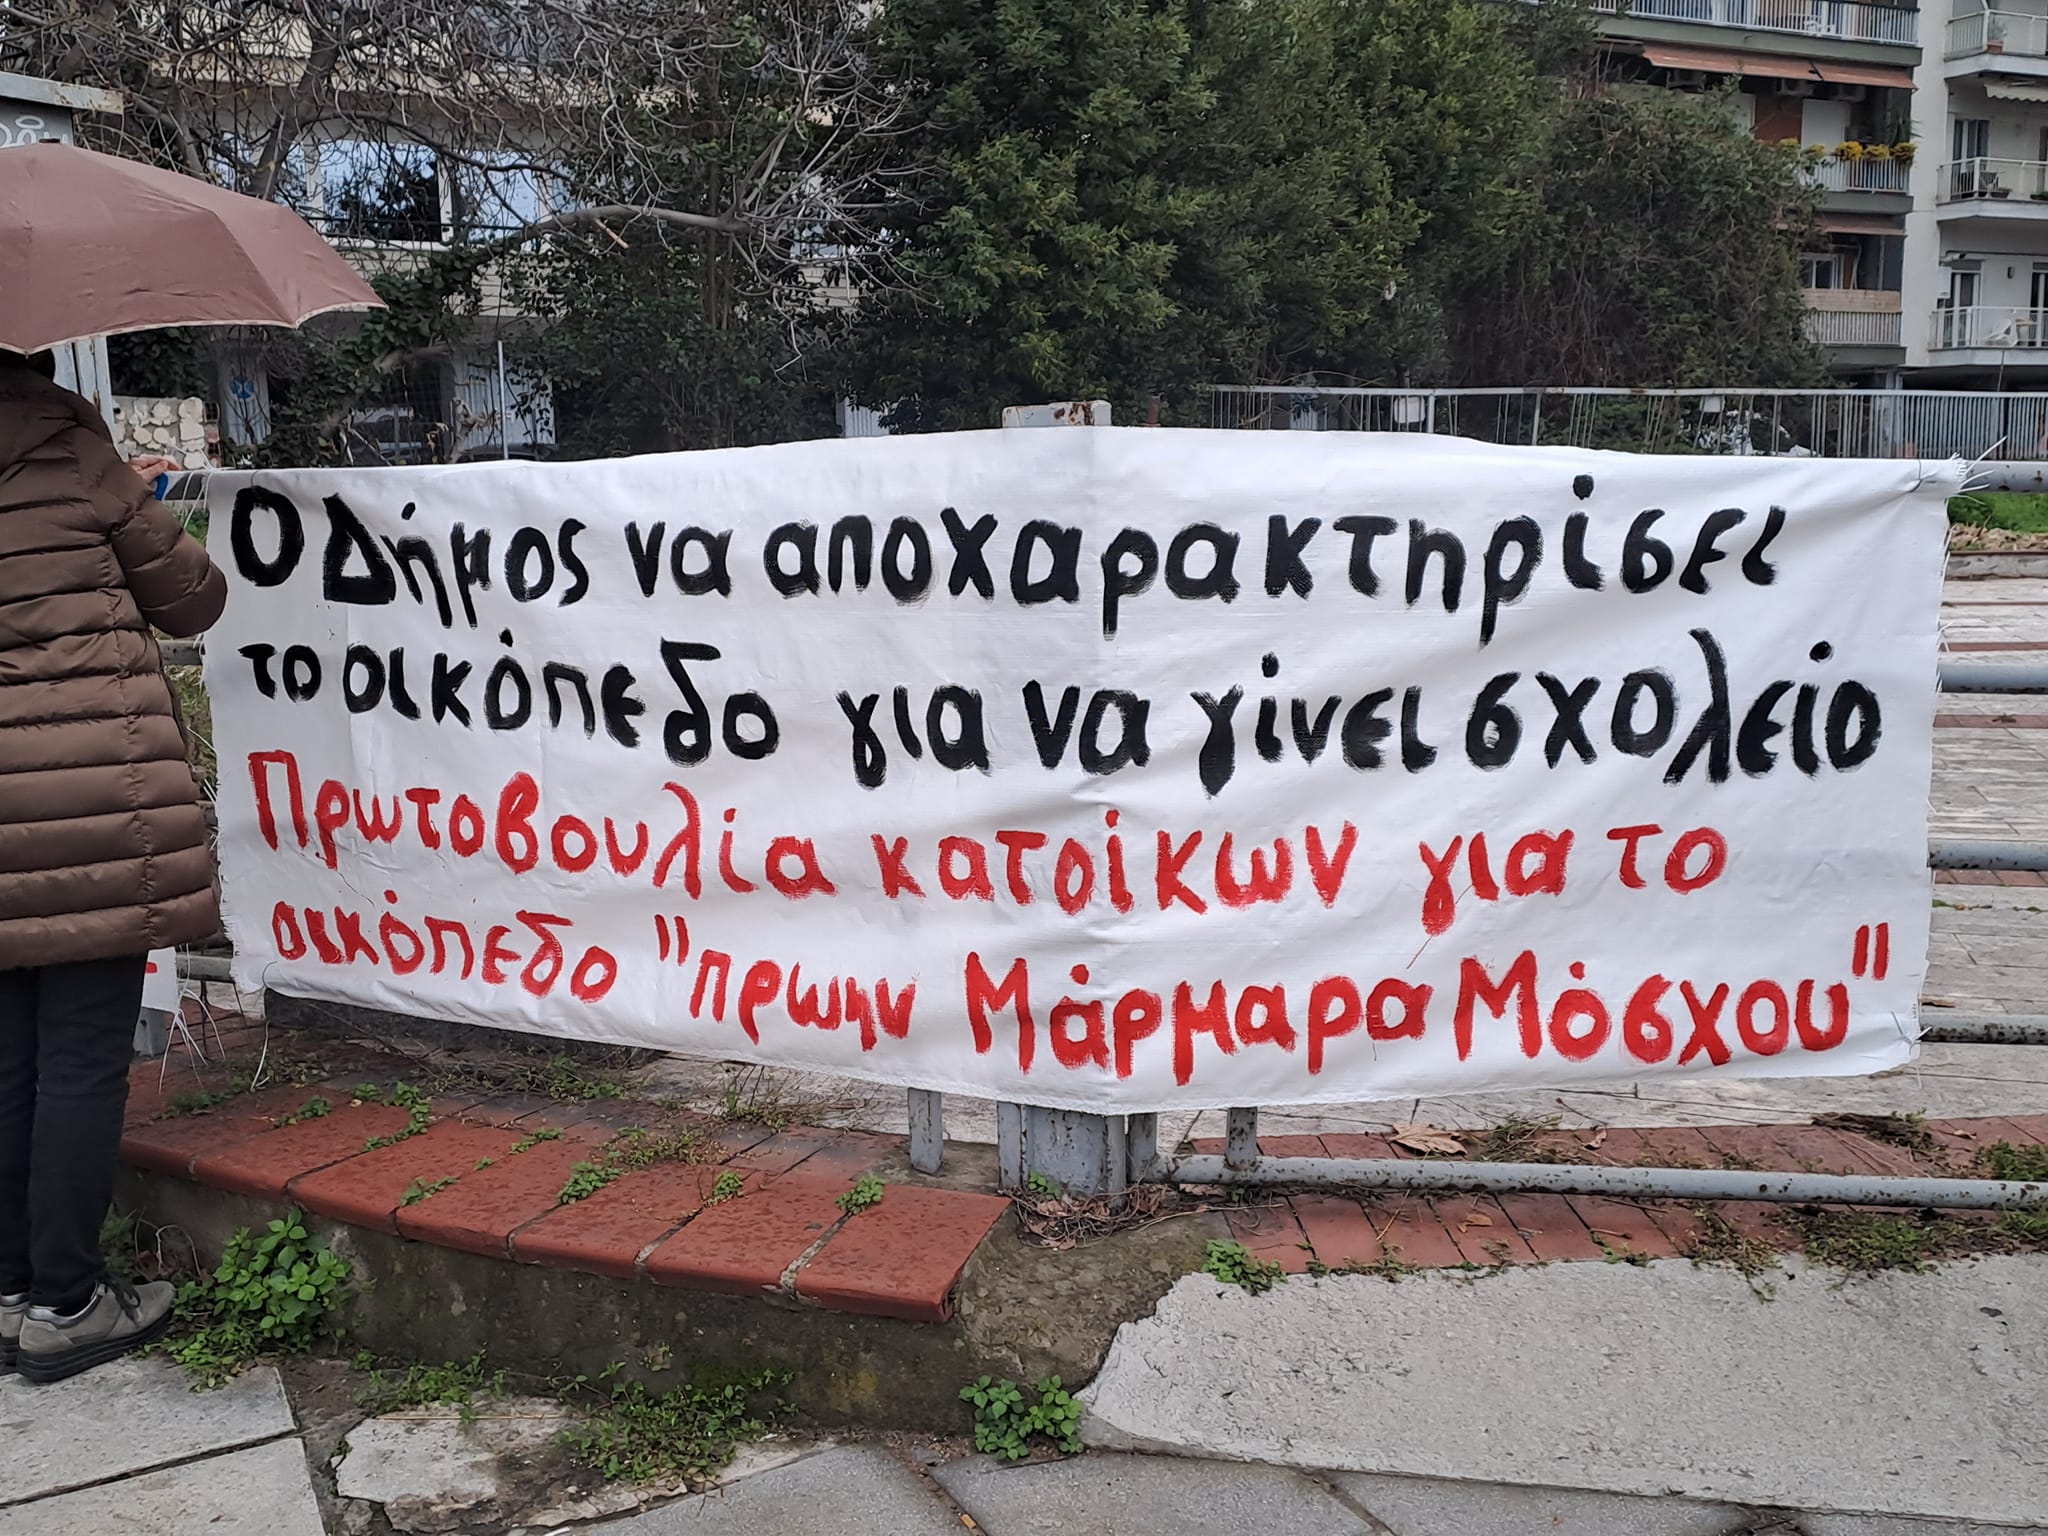 Ο Δήμος να αποχαρακτηρίσει
το οικόπεδο για να γίνει σχολείο
Πρωτοβουλία κατοίκων για το
οικόπεδο "πρωην Μάρμαρα Μόσχου"